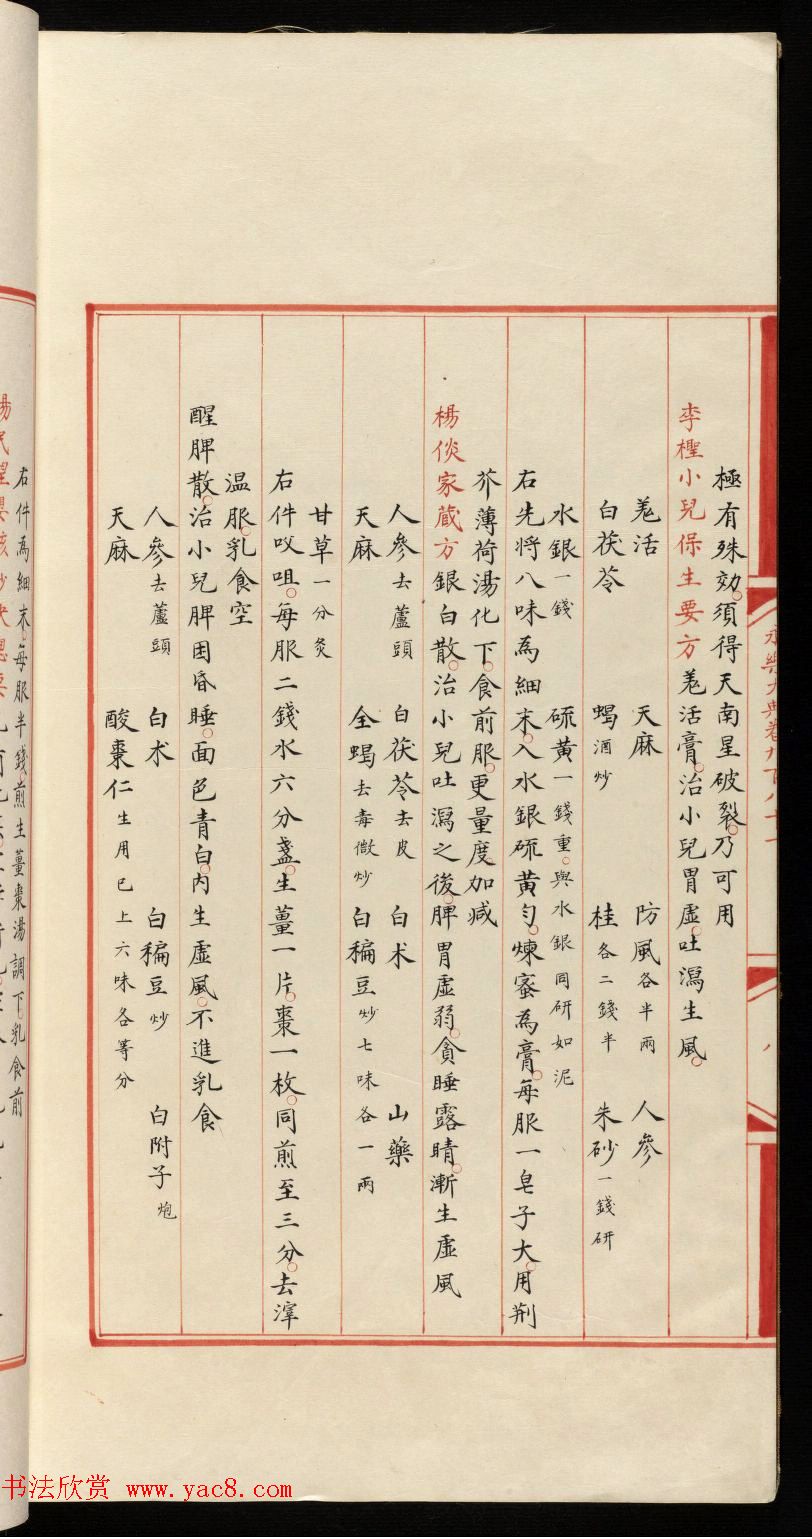 極有殊効須得天南星破裂乃可用
李檉小兒保生要方羗活膏治小兒胃虛吐瀉生風
羗活 天麻 防風各半兩 人參
白茯苓 蝎酒炒 桂各二錢半 朱砂一錢研
水銀一錢 硫黃一錢重與水銀同研如泥
右先將八味為細末入水銀硫黃勻煉蜜為膏每服一皂子大用荆
芥薄荷湯化下食前服更量度加减
楊倓家藏方銀白散治小兒吐瀉之後脾胃虛弱貪睡露睛漸生虛風
人參去蘆頭 白茯苓去皮 白朮 山藥
天麻 全蝎去毒微炒 白稨豆炒七味各一兩
甘草一分炙
右件㕮咀每服二錢水六分盞生薑一片棗一枚同煎至三分去滓
温服乳食空
醒脾散治小兒脾困昏睡面色青白內生虛風不進乳食
人參去蘆頭 白朮 白稨豆炒 白附子炮
天麻 酸棗仁生用已上六味各等分
右件為細末每服半錢煎生薑棗湯調下乳食前
永樂大典卷九百八十
八
书法欣赏 www.yac8.com